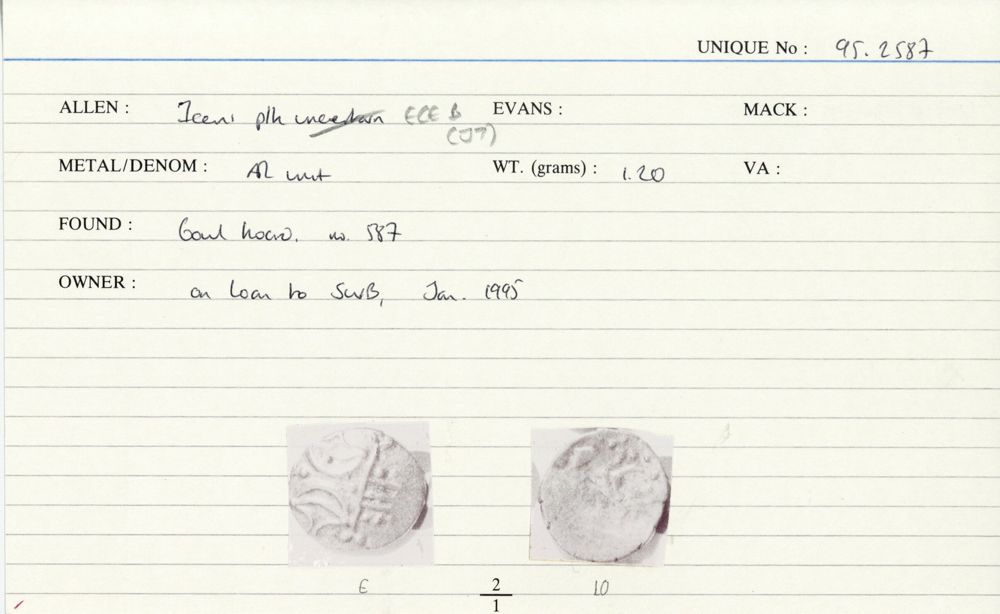 UNIQUE No : 95.2587
ALLEN : Iceni plh uncertain ECE B EVANS : MACK :
(JT)
METAL/DENOM : AR unit WT. (grams) : 1.20 VA :
FOUND : hoard. no. 587
OWNER : on loan to SWB, Jan. 1995
6 2 10
1